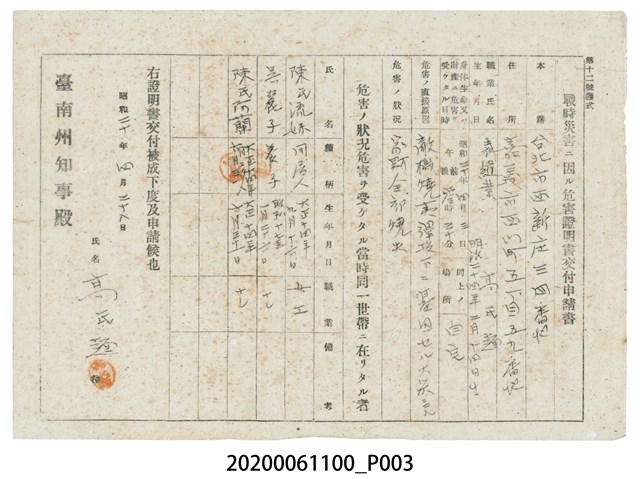 第十二號樣式
戰時災害ニ因ル危害證明書交付申請書
本籍 台北市西新庄三四番地
住所 嘉義市西門町五丁目五九番地
職業氏名 高氏
生年月日 明治 十四年二月十四日生
身体生命又ハ財產ニ危害ヲ受ケタル日時 昭和二十年四月三日 午前 後 時三十分
同上ノ場所 自宅
危害ノ直接原因 敵機燒夷彈投下ニ基因セル火災
危害ノ狀況 家財全部燒失
危害ノ狀況危害ヲ受ケタル當時同一世帶ニ在リタル者
氏名 續柄 生年月日 職業 備考
陳氏流妹 同居人 大正十四年九月十六日 女工
吳麗子 養子 昭和十七年一月二十六日 ナシ
陳氏阿蘭 同居人 大正十四年 ナシ
右證明書交付被成下度及申請候也
昭和二十年四月二十八日
氏名 高氏
臺南州知事殿
20200061100_P003